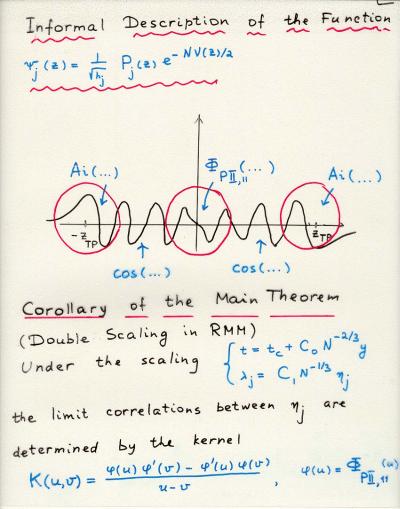 Informal Description of the Function
ψ_j(z) = 1/√h_j P_j(z) e^{-NV(z)/2}
Ai(...)
Φ_{PII,11}(...)
Ai(...)
-z_TP
z_TP
cos(...)
cos(...)
Corollary of the Main Theorem
(Double Scaling in RMM)
Under the scaling { t = t_c + C_0 N^{-2/3} y
λ_j = C_1 N^{-1/3} η_j
the limit correlations between η_j are
determined by the kernel
K(u,v) = (φ(u) φ'(v) - φ'(u) φ(v)) / (u - v), φ(u) = Φ_{PII,11}(u)